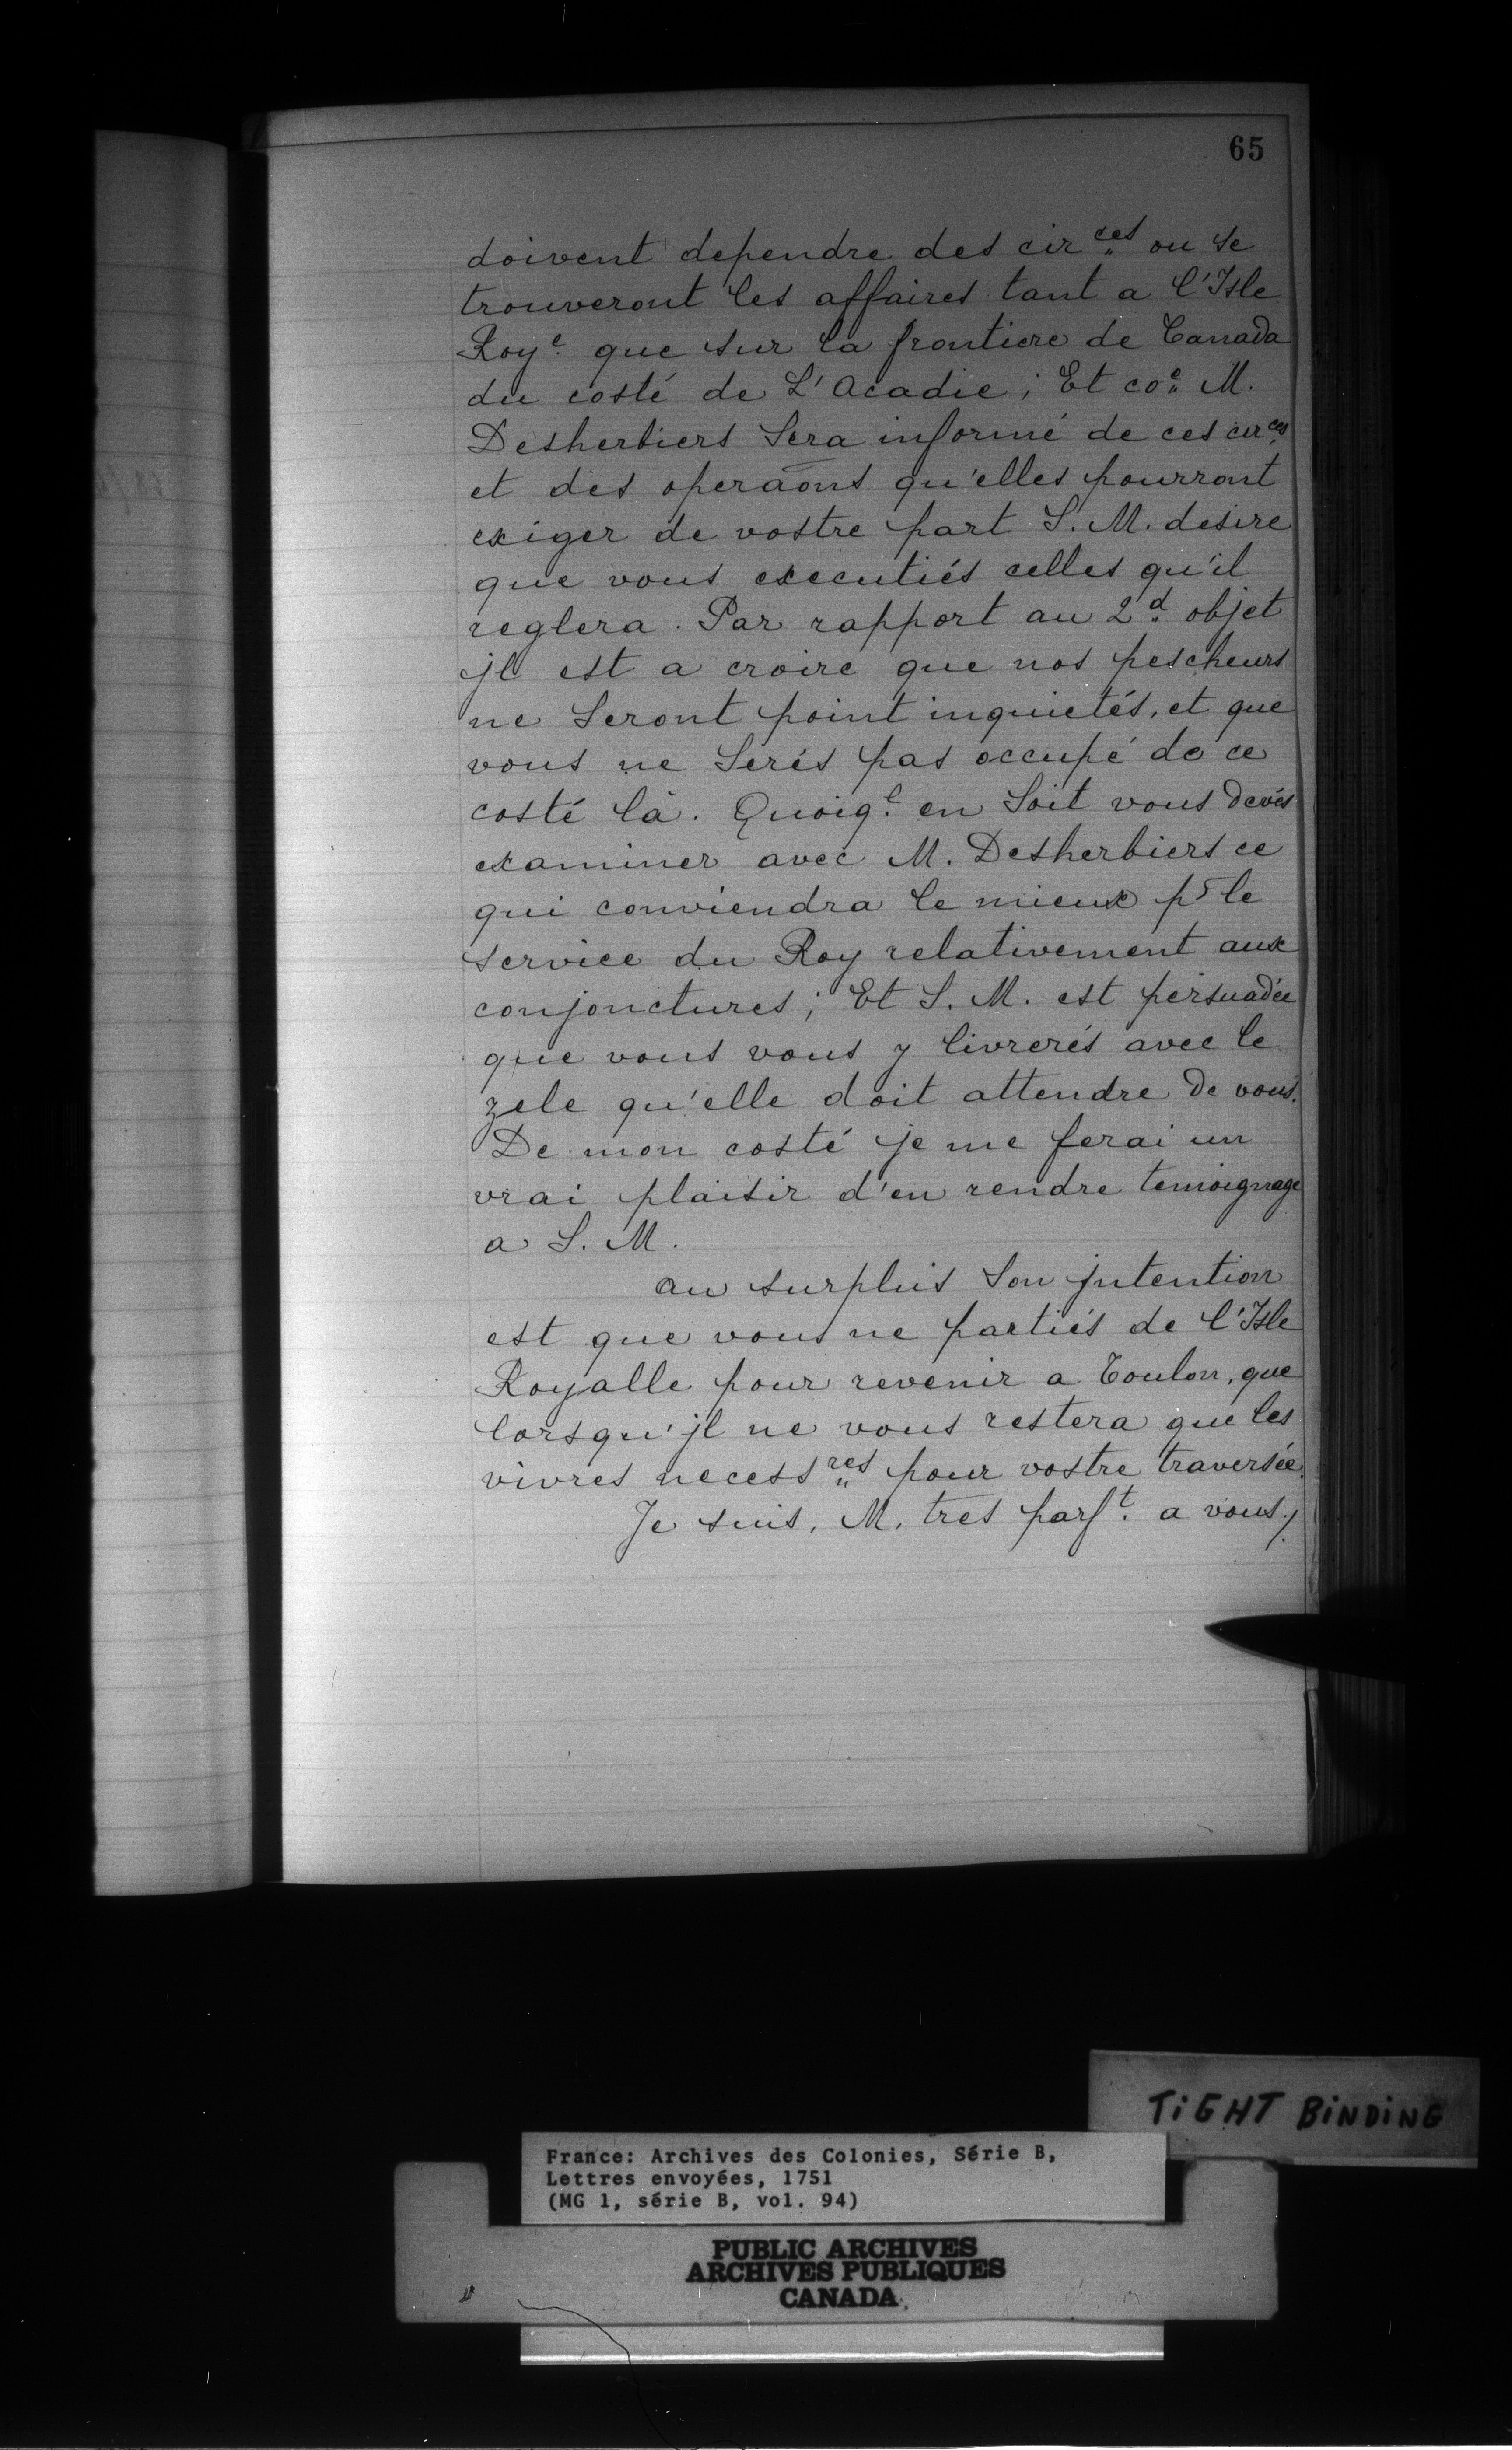 65
doivent dependre des cir.ces ou se
trouveront les affaires tant a l'Isle
Roy.e que sur la frontiere de Canada
du costé de L'Acadie ; Et co.e M.
Desherbiers Sera informé de ces cir.ces
et des operaõns qu'elles pourront
exiger de vostre part S. M. desire
que vous executiés celles qu'il
reglera. Par rapport au 2.d objet
jl est a croire que nos pescheurs
ne Seront point inquietés, et que
vous ne Serés pas occupé de ce
costé là. Quoiq.l en Soit vous devés
examiner avec M. Desherbiers ce
qui conviendra le mieux pr le
service du Roy relativement aux
conjonctures ; Et S. M. est persuadée
que vous vous y livrerés avec le
zele qu'elle doit attendre de vous.
De mon costé je me ferai un
vrai plaisir d'en rendre temoignage
a S. M.
au surplus Son jntention
est que vous ne partiés de l'Isle
Royalle pour revenir a Toulon, que
lorsqu'jl ne vous restera que les
vivres necess.res pour vostre traversée.
Je suis, M. tres parf.t a vous ./
TiGHT BiNDiNG
France: Archives des Colonies, Série B,
Lettres envoyées, 1751
(MG 1, série B, vol. 94)
PUBLIC ARCHIVES
ARCHIVES PUBLIQUES
CANADA